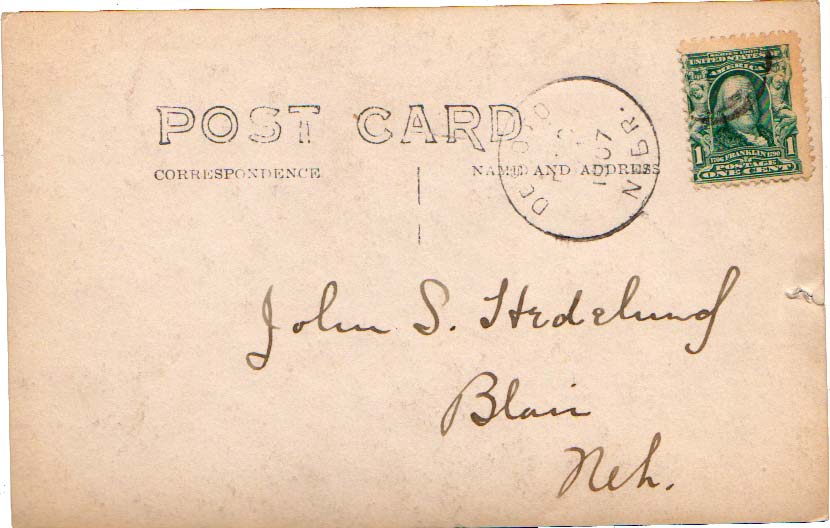 POST CARD
CORRESPONDENCE
NAME AND ADDRESS
1907
NEBR.
UNITED STATES OF
AMERICA
1706 FRANKLIN 1790
1 1
POSTAGE
ONE CENT
John S. Hedelund
Blair
Neb.